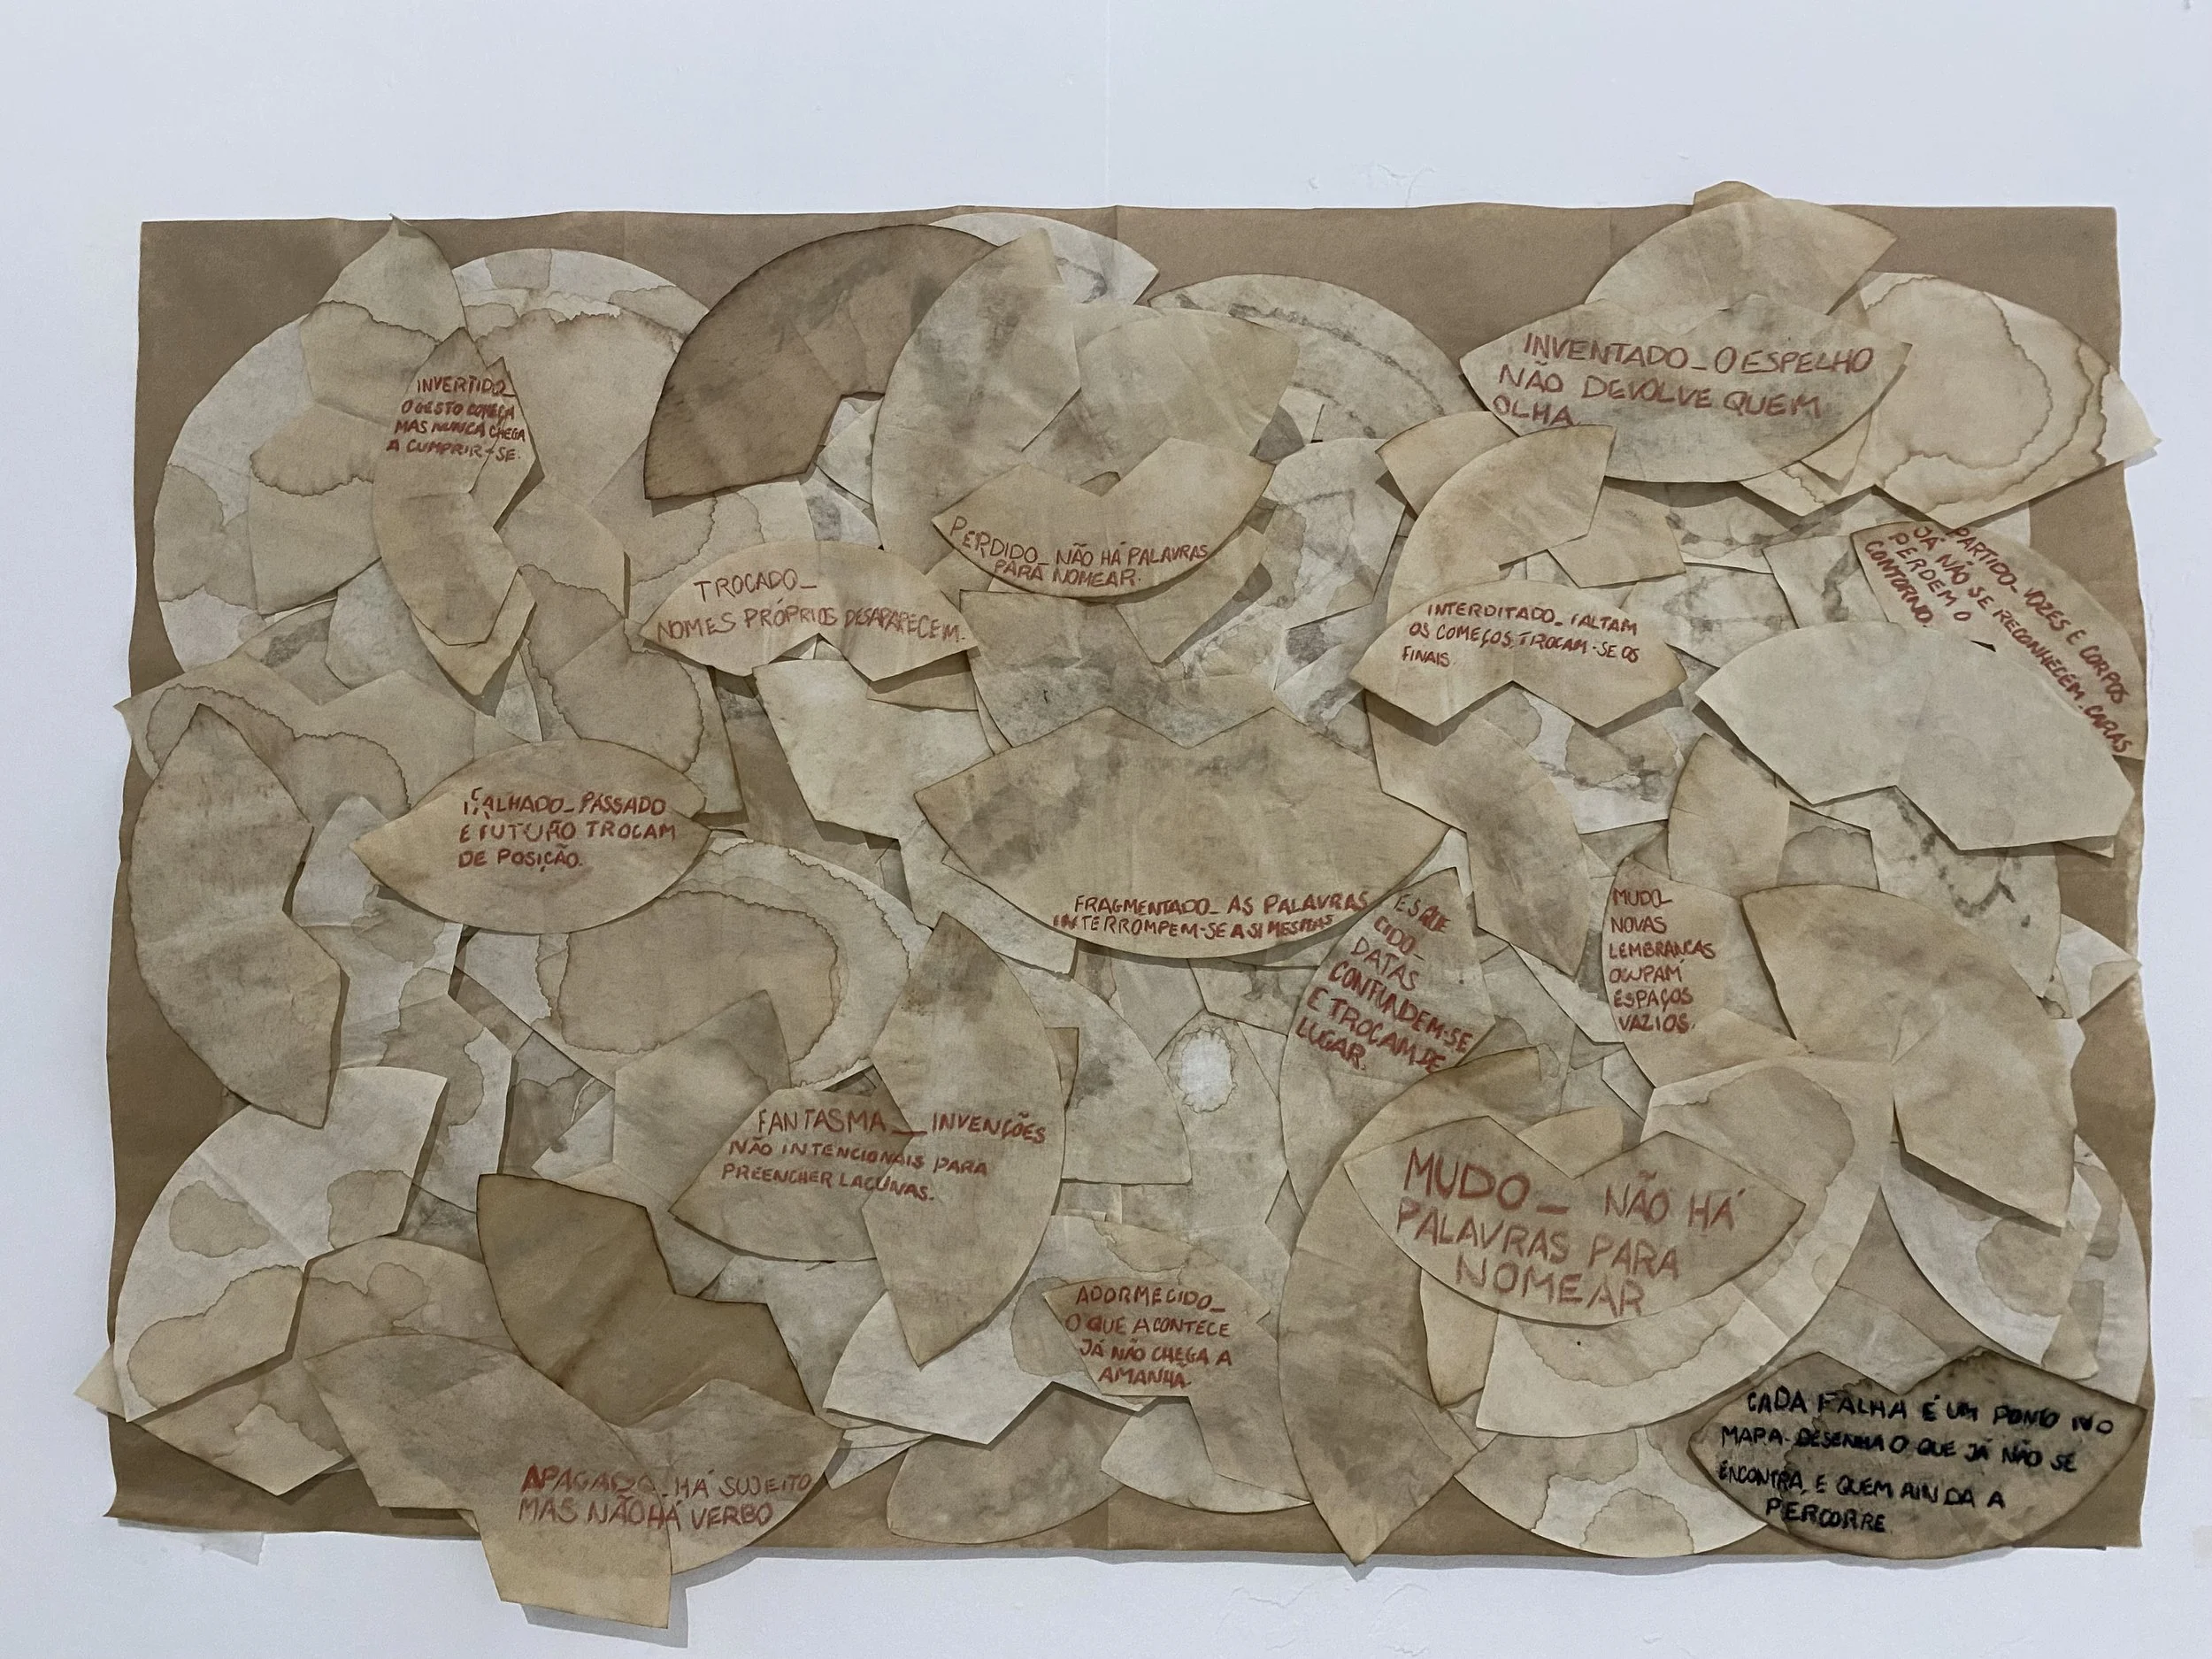 INVERTIDO_
O GESTO COMEÇA
MAS NUNCA CHEGA
A CUMPRIR-SE.
INVENTADO_O ESPELHO
NÃO DEVOLVE QUEM
OLHA
PERDIDO_NÃO HÁ PALAVRAS
PARA NOMEAR.
TROCADO_
NOMES PRÓPRIOS DESAPARECEM.
INTERDITADO_FALTAM
OS COMEÇOS, TROCAM-SE OS
FINAIS.
PARTIDO_VOZES E CORPOS
JÁ NÃO SE RECONHECEM. CARAS
PERDEM O
CONTORNO.
FALHADO_PASSADO
E FUTURO TROCAM
DE POSIÇÃO.
FRAGMENTADO_AS PALAVRAS
INTERROMPEM-SE A SI MESMAS
ESQUE
CIDO_
DATAS
CONFUNDEM-SE
E TROCAM DE
LUGAR.
MUDO_
NOVAS
LEMBRANÇAS
OCUPAM
ESPAÇOS
VAZIOS.
FANTASMA__INVENÇÕES
NÃO INTENCIONAIS PARA
PREENCHER LACUNAS.
MUDO_ NÃO HÁ
PALAVRAS PARA
NOMEAR
ADORMECIDO_
O QUE ACONTECE
JÁ NÃO CHEGA A
AMANHÃ.
APAGADO_HÁ SUJEITO
MAS NÃO HÁ VERBO
CADA FALHA É UM PONTO NO
MAPA. DESENHA O QUE JÁ NÃO SE
ENCONTRA E QUEM AINDA A
PERCORRE.